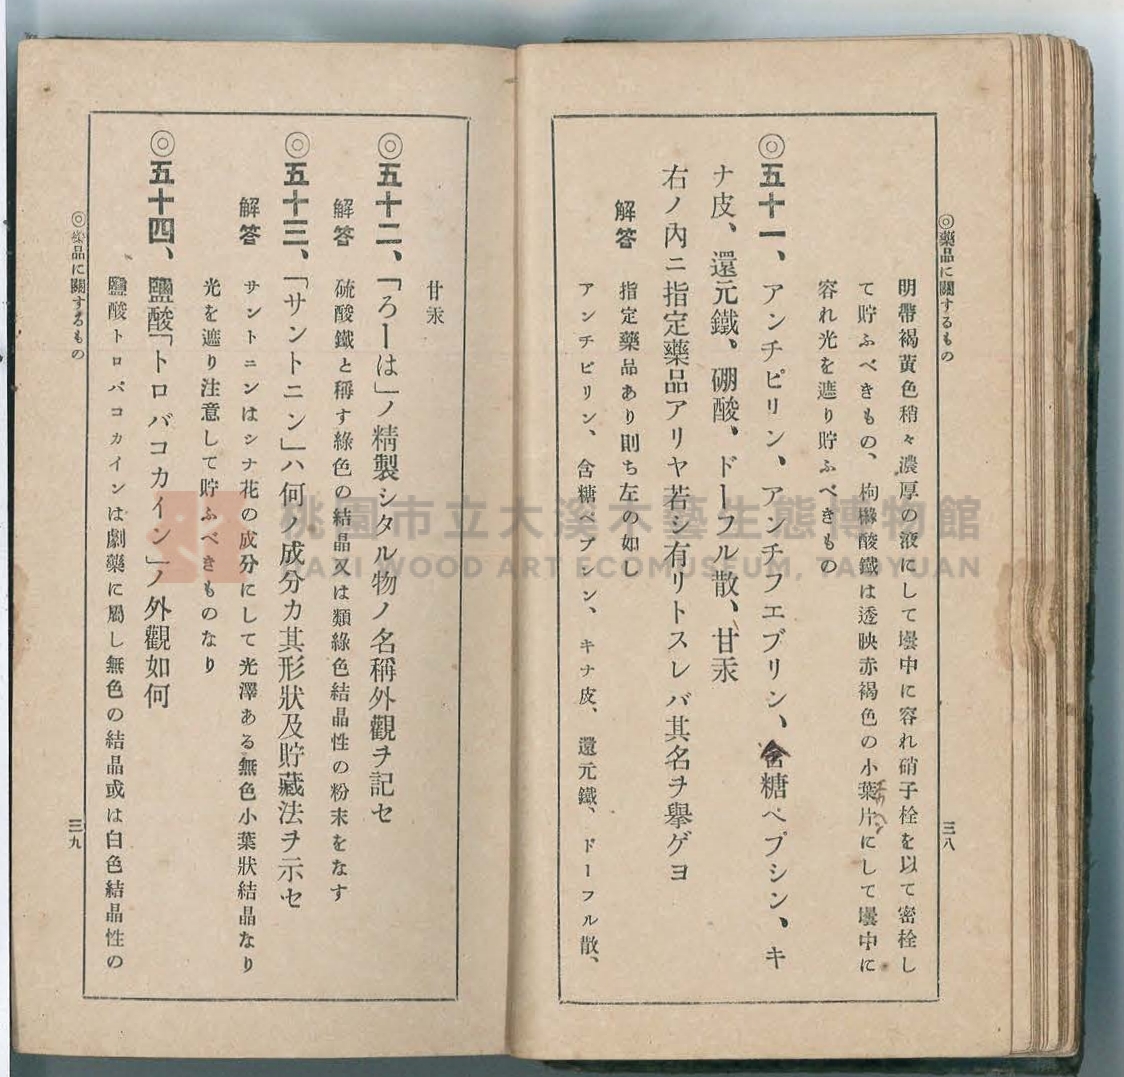 ◎藥品に關するもの
三八
明帶褐黃色稍々濃厚の液にして壜中に容れ硝子栓を以て密栓し
て貯ふべきもの、枸櫞酸鐵は透映赤褐色の小葉片にして壜中に
容れ光を遮り貯ふべきもの
◎五十一、アンチピリン、アンチフエブリン、含糖ペプシン、キ
ナ皮、還元鐵、硼酸、ドーフル散、甘汞
右ノ內ニ指定藥品アリヤ若シ有リトスレバ其名ヲ擧ゲヨ
解答 指定藥品あり則ち左の如し
アンチピリン、含糖ペプシン、キナ皮、還元鐵、ドーフル散、
甘汞
◎五十二、「ろーは」ノ精製シタル物ノ名稱外觀ヲ記セ
解答 硫酸鐵と稱す綠色の結晶又は類綠色結晶性の粉末をなす
◎五十三、「サントニン」ハ何ノ成分カ其形狀及貯藏法ヲ示セ
解答 サントニンはシナ花の成分にして光澤ある無色小葉狀結晶なり
光を遮り注意して貯ふべきものなり
◎五十四、鹽酸「トロバコカイン」ノ外觀如何
鹽酸トロバコカインは劇藥に屬し無色の結晶或は白色結晶性の
◎藥品に關するもの
三九
桃園市立大溪木藝生態博物館
DAXI WOOD ART ECOMUSEUM, TAOYUAN